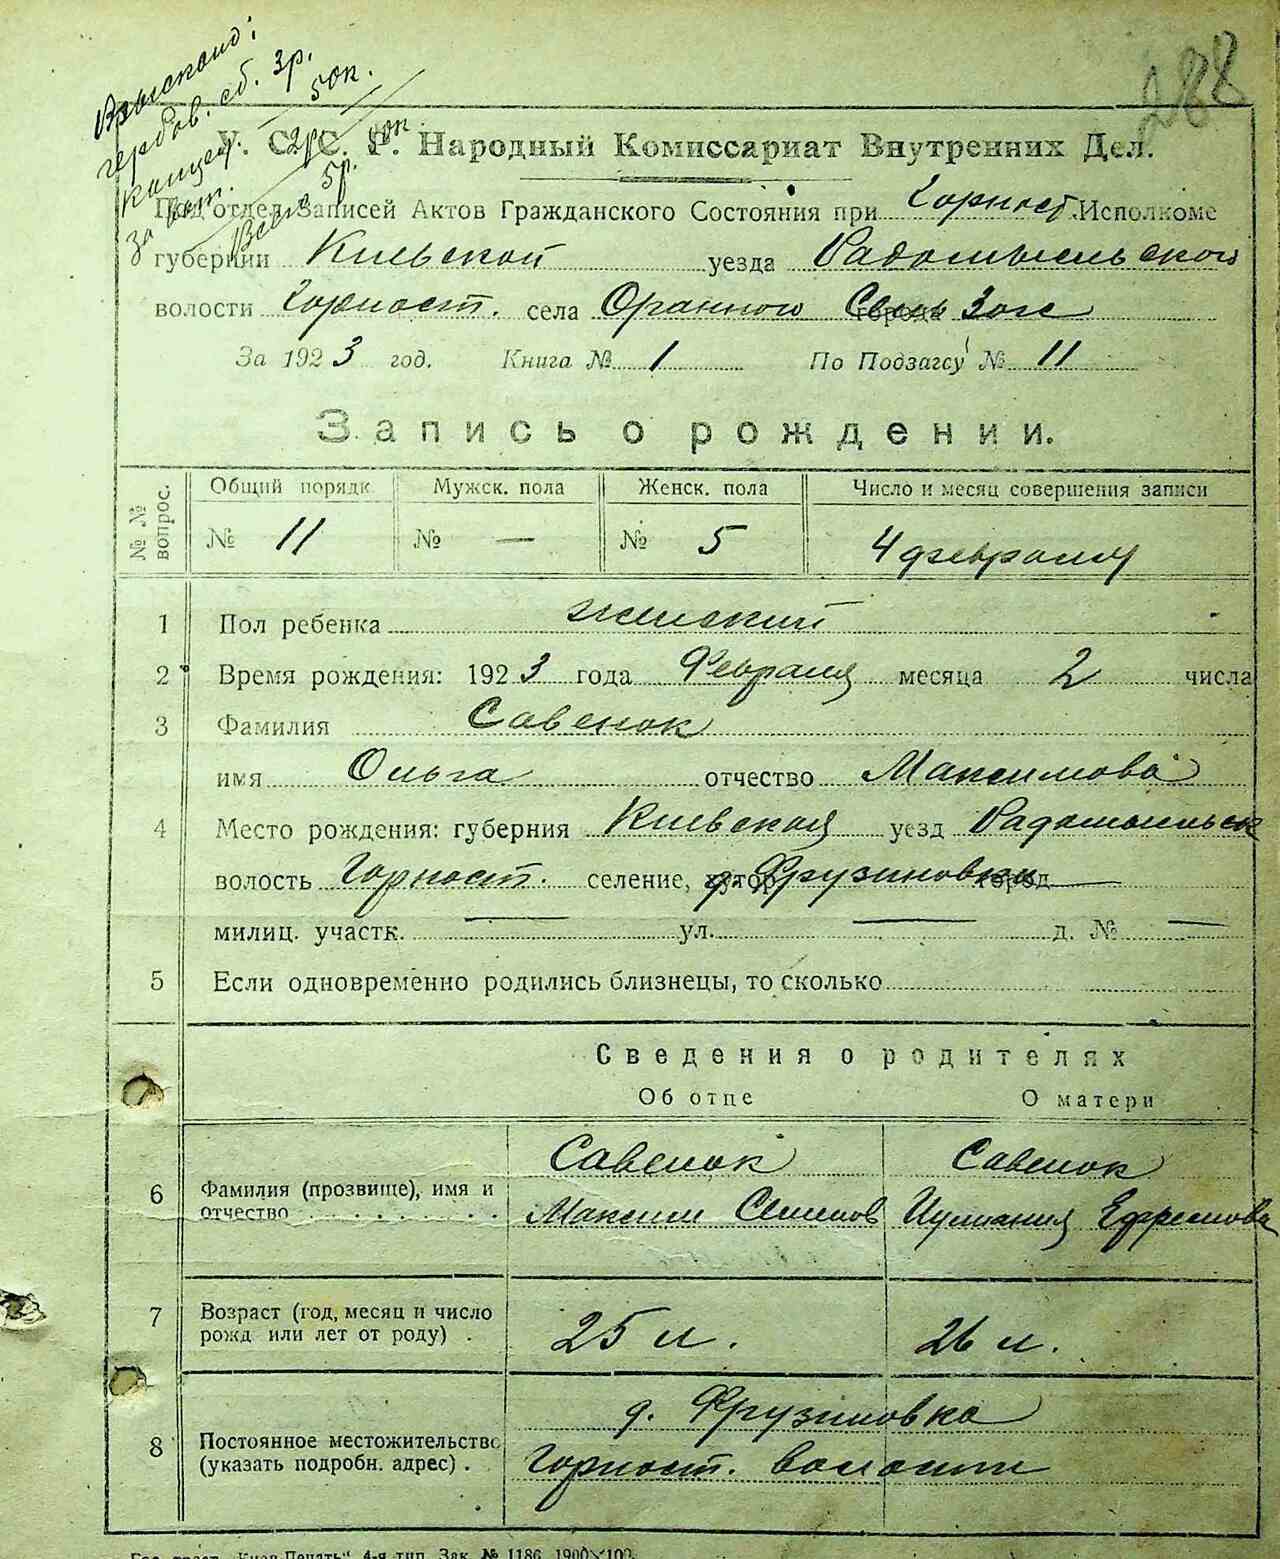 288
Взыскано:
гербов. сб. 3р.
канцел. 50к.
за бл. 2р. 10к
Всего 5р.
У. С. С. Р. Народный Комиссариат Внутренних Дел.
Подотдел Записей Актов Гражданского Состояния при Горност. Исполкоме
губернии Киевской уезда Радомысльского
волости Горност. села Оранного города
За 1923 год. Книга № 1 По Подзагсу № 11
Запись о рождении.
№ № вопрос. Общий порядк Мужск. пола Женск. пола Число и месяц совершения записи
№ 11 № — № 5 4 февраля
1 Пол ребенка женский
2 Время рождения: 1923 года Февраля месяца 2 числа
3 Фамилия Савенок
имя Ольга отчество Максимова
4 Место рождения: губерния Киевская уезд Радомысльск
волость Горност. селение, хутор д. Фрузиновка город —
милиц. участк. — ул. — д. № —
5 Если одновременно родились близнецы, то сколько
Сведения о родителях
Об отце О матери
6 Фамилия (прозвище), имя и отчество . . . . . . . .
Савенок Савенок
Максим Семенов Иулиания Ефремова
7 Возраст (год, месяц и число
рожд или лет от роду) .
25 л. 26 л.
8 Постоянное местожительство
(указать подробн. адрес) .
д. Фрузиновка
Горност. волости
4-я тип. Зак. № 1186 1900×100.